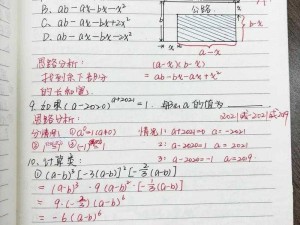 B. ab-ax-bx-x²
C. ab-ax-bx+2x²
D. ab-ax-bx-2x²
公路
b-x
a-x
思路分析: (a-x)(b-x)
找到余下部分 = ab-bx-ax+x²
的长和宽.
9. 如果(a-2020)^{a+2021}=1. 那么a的值为
思路分析: 2021或-2021或2019
分情况: ①a⁰=1(a≠0) 情况1: a+2021=0 a=-2021
2: a-2020=1 a=2021
3: a-2020=-1 a=2019.
10. 计算类:
①(a-b)³[-3(a-b)]²[-\frac{2}{3}(a-b)]
= (a-b)³·9(a-b)²·[-\frac{2}{3}(a-b)]
= 9·(-\frac{2}{3})(a-b)⁶
= -6(a-b)⁶